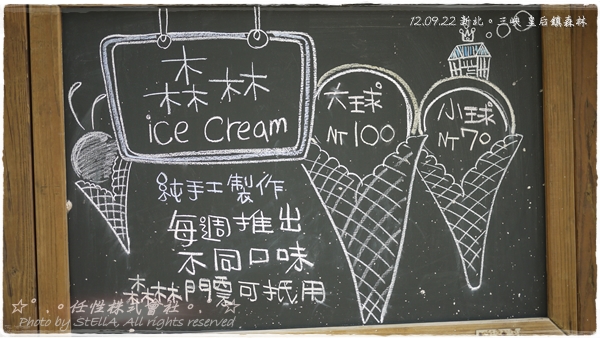 12.09.22 新北。三峽 皇后鎮森林
森林
ice cream
大球
NT 100
小球
NT 70
純手工製作
每週推出
不同口味
森林門票可抵用
☆°.。任性株式會社。.°☆
Photo by StEllA. All rights reserved